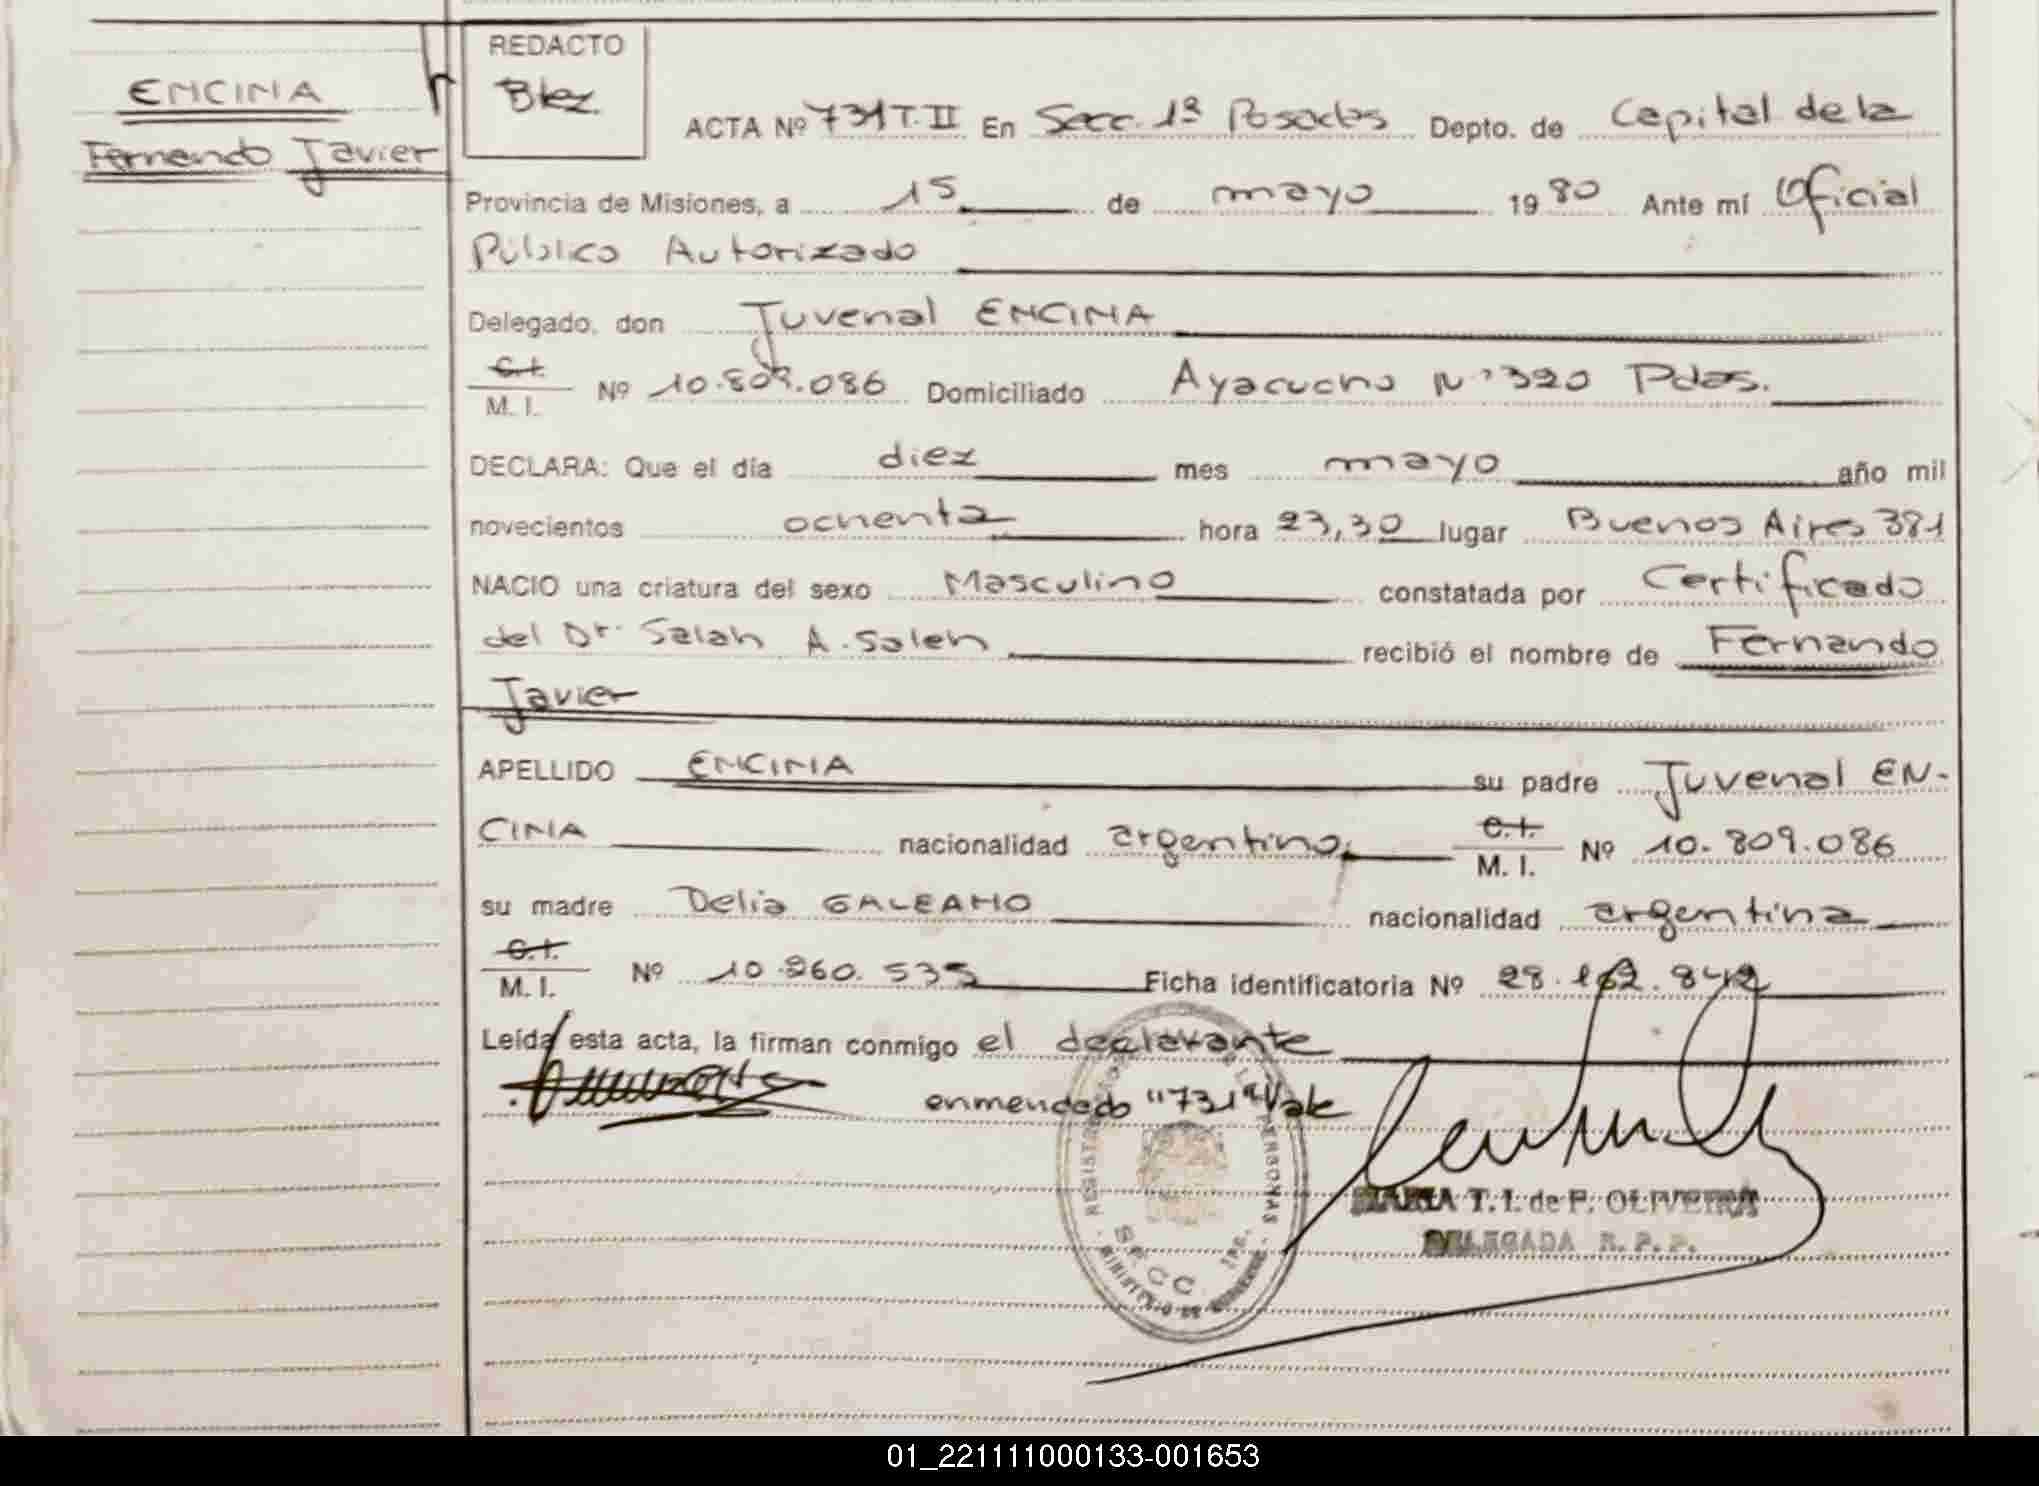 ENCINA
Fernando Javier
REDACTO
Blez.
ACTA Nº 731 T. II En Secc. 1ª Posadas Depto. de Capital de la
Provincia de Misiones, a 15 de mayo 1980 Ante mí Oficial
Público Autorizado
Delegado, don Juvenal ENCINA
C.I.
M. I. Nº 10.809.086 Domiciliado Ayacucho Nº 320 Pdas.
DECLARA: Que el día diez mes mayo año mil
novecientos ochenta hora 23,30 lugar Buenos Aires 381
NACIO una criatura del sexo Masculino constatada por Certificado
del Dr. Salah A. Saleh recibió el nombre de Fernando
Javier
APELLIDO ENCINA su padre Juvenal EN-
CINA nacionalidad argentino, C.I.
M. I. Nº 10.809.086
su madre Delia GALEANO nacionalidad argentina
C.I.
M. I. Nº 10.960.535 Ficha identificatoria Nº 28.162.842
Leída esta acta, la firman conmigo el declarante
enmendado "731" Vale
MARIA T. I. de P. OLIVEIRA
DELEGADA R. P. P.
01_221111000133-001653